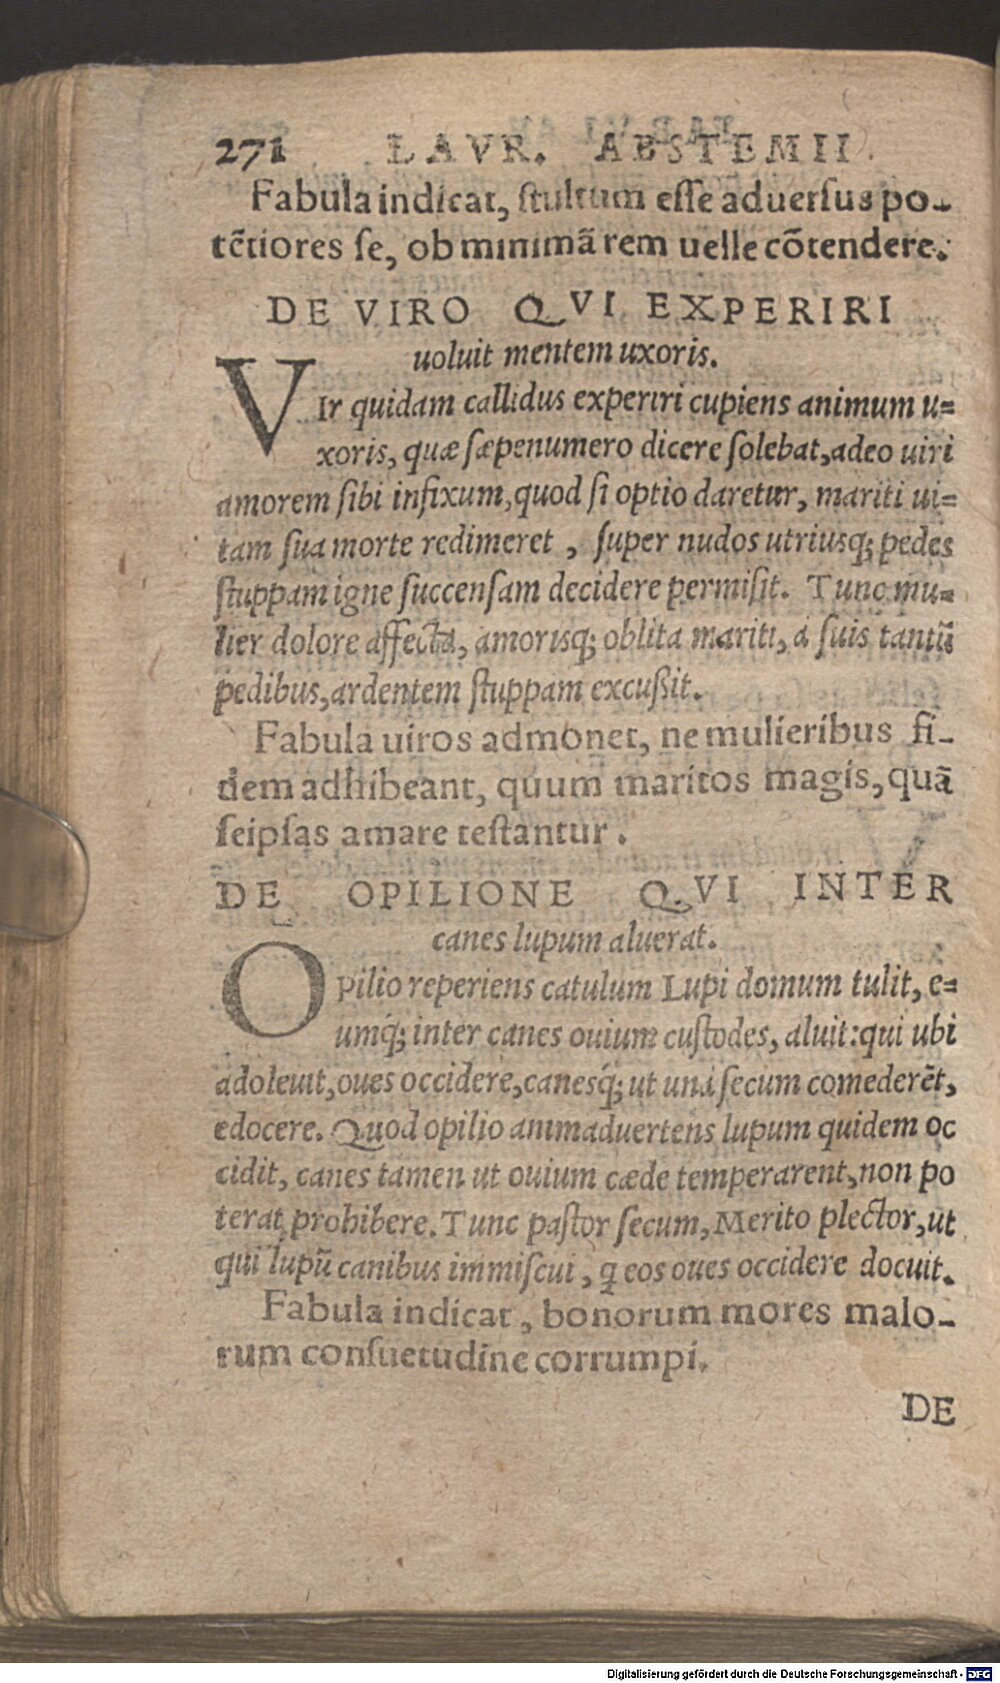 271 LAVR. ABSTEMII.
Fabula indicat, stultum esse aduersus po-
tẽtiores se, ob minimã rem uelle cõtendere.
DE VIRO QVI EXPERIRI
uoluit mentem uxoris.
VIr quidam callidus experiri cupiens animum u=
xoris, quæ sæpenumero dicere solebat, adeo uiri
amorem sibi infixum, quod si optio daretur, mariti ui=
tam sua morte redimeret, super nudos utriusq; pedes
stuppam igne succensam decidere permisit. Tunc mu=
lier dolore affecta, amorisq; oblita mariti, à suis tantũ
pedibus, ardentem stuppam excußit.
Fabula uiros admonet, ne mulieribus fi-
dem adhibeant, quum maritos magis, quã
seipsas amare testantur.
DE OPILIONE QVI INTER
canes lupum aluerat.
OPilio reperiens catulum Lupi domum tulit, e=
umq́; inter canes ouium custodes, aluit: qui ubi
adoleuit, oues occidere, canesq́; ut unà secum comederẽt,
edocere. Quod opilio animaduertens lupum quidem oc
cidit, canes tamen ut ouium cæde temperarent, non po
terat prohibere. Tunc pastor secum, Merito plector, ut
qui lupũ canibus immiscui, q eos oues occidere docuit.
Fabula indicat, bonorum mores malo-
rum consuetudine corrumpi.
DE
Digitalisierung gefördert durch die Deutsche Forschungsgemeinschaft - DFG